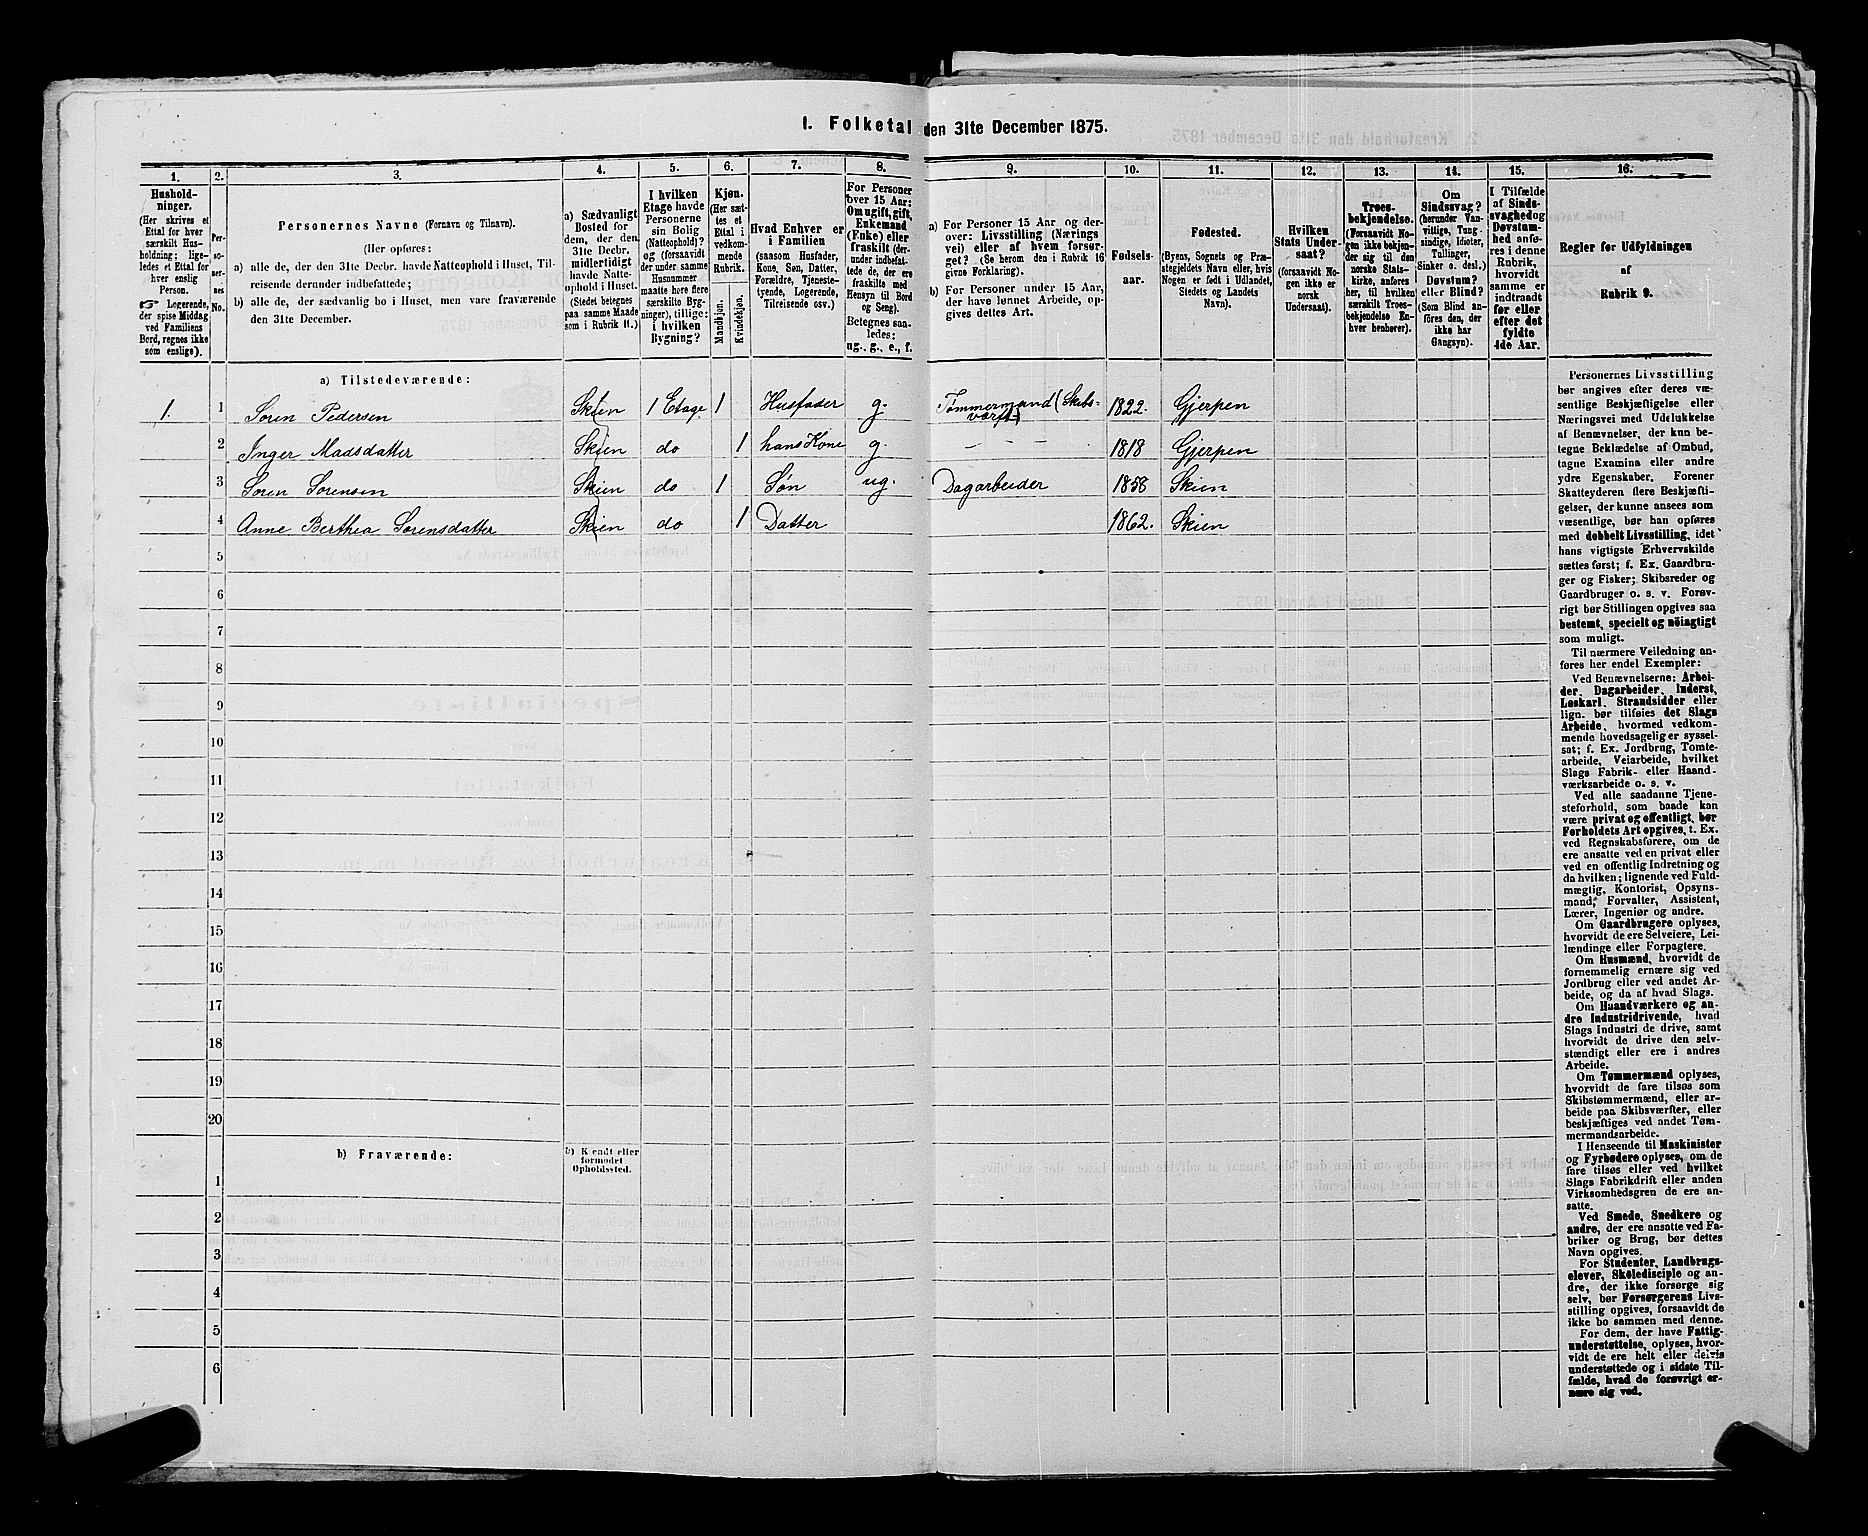 I. Folketal den 31te December 1875.
1.
Hushold-
ninger.
(Her skrives et
Ettal for hver
særskilt Hus-
holdning; lige-
ledes et Ettal for
hver enslig
Person.
☞ Logerende,
der spise Middag
ved Familiens
Bord, regnes ikke
som enslige).
2.
Per-
so-
ner-
nes
No.
3.
Personernes Navne (Fornavn og Tilnavn).
(Her opføres:
a) alle de, der den 31te Decbr. havde Natteophold i Huset, Til-
reisende derunder indbefattede;
b) alle de, der sædvanlig bo i Huset, men vare fraværende
den 31te December.
4.
a) Sædvanligt
Bosted for
dem, der den
31te Decbr.
midlertidigt
havde Natte-
ophold i Huset.
(Stedet betegnes
paa samme Maade
som i Rubrik 11.)
5.
I hvilken
Etage havde
Personerne
sin Bolig
(Natteophold)?
og (forsaavidt
der under samme
Husnummer
maatte høre flere
særskilte Byg-
ninger), tillige:
i hvilken
Bygning?
6.
Kjøn.
(Her sæt-
tes et
Ettal i
vedkom-
mende
Rubrik.
Mandkjøn.
Kvindekjøn.
7.
Hvad Enhver er
i Familien
(saasom Husfader,
Kone, Søn, Datter,
Forældre, Tjeneste-
tyende, Logerende,
Tilreisende osv.)
8.
For Personer
over 15 Aar:
Om ugift, gift,
Enkemand
(Enke) eller
fraskilt (der-
under indbefat-
tede de, der ere
fraskilte med
Hensyn til Bord
og Seng).
Betegnes saa-
ledes:
ug., g., e., f.
9.
a) For Personer 15 Aar og der-
over: Livsstilling (Nærings
vei) eller af hvem forsør-
get? (Se herom den i Rubrik 16
givne Forklaring).
b) For Personer under 15 Aar,
der have lønnet Arbeide, op-
gives dettes Art.
10.
Fødsels-
aar.
11.
Fødested.
(Byens, Sognets og Præ-
stegjeldets Navn eller, hvis
Nogen er født i Udlandet,
Stedets og Landets
Navn).
12.
Hvilken
Stats Under-
saat?
(forsaavidt No-
gen ikke er
norsk
Undersaat).
13.
Troes-
bekjendelse.
(Forsaavidt No-
gen ikke bekjen-
der sig til den
norske Stats-
kirke, anføres
her, til hvilken
særskilt Troes-
bekjendelse En-
hver henhører).
14.
Om
Sindssvag?
(herunder Van-
vittige, Tung-
sindige, Idioter,
Tullinger,
Sinker o. desl.)
Døvstum?
eller Blind?
(Som Blind an-
føres den, der
ikke har
Gangsyn).
15.
I Tilfælde
af Sinds-
svaghed og
Døvstum-
hed anfø-
res i denne
Rubrik,
hvorvidt
samme er
indtraadt
før eller
efter det
fyldte
4de Aar.
16.
Regler for Udfyldningen
af
Rubrik 9.
a) Tilstedeværende:
1. 1 Soren Pedersen Skien 1 Etage 1 Husfader g. Tømmermand (Skibs-
værft) 1822. Gjerpen
2 Inger Madsdatter Skien do 1 hans Kone g. – – – 1818 Gjerpen
3 Soren Sorensen Skien do 1 Søn ug. Dagarbeider 1858 Skien
4 Anne Berthea Sorensdatter Skien do 1 Datter 1862. Skien
5
6
7
8
9
10
11
12
13
14
15
16
17
18
19
20
b) Fraværende:
b) Kjendt eller
formodet
Opholdssted.
1
2
3
4
5
6
Personernes Livsstilling
bør angives efter deres væ-
sentlige Beskjæftigelse eller
Næringsvei med Udelukkelse
af Benævnelser, der kun be-
tegne Beklædelse af Ombud,
tagne Examina eller andre
ydre Egenskaber. Forener
Skatteyderen flere Beskjæfti-
gelser, der kunne ansees som
væsentlige, bør han opføres
med dobbelt Livsstilling, idet
hans vigtigste Erhvervskilde
sættes først; f. Ex. Gaardbru-
ger og Fisker; Skibsreder og
Gaardbruger o. s. v. Forøv-
rigt bør Stillingen opgives saa
bestemt, specielt og nöiagtigt
som muligt.
Til nærmere Veiledning an-
føres her endel Exempler:
Ved Benævnelserne: Arbei-
der, Dagarbeider, Inderst,
Løskarl, Strandsidder eller
lign. bør tilføies det Slags
Arbeide, hvormed vedkom-
mende hovedsagelig er syssel-
sat; f. Ex. Jordbrug, Tomte-
arbeide, Veiarbeide, hvilket
Slags Fabrik- eller Haand-
værksarbeide o. s. v.
Ved alle saadanne Tjene-
steforhold, som baade kan
være privat og offentligt, bør
Forholdets Art opgives, t. Ex.
ved Regnskabsførere, om de
ere ansatte ved en privat eller
ved en offentlig Indretning og
da hvilken; lignende ved Fuld-
mægtig, Kontorist, Opsyns-
mand, Forvalter, Assistent,
Lærer, Ingeniør og andre.
Om Gaardbrugere oplyses,
hvorvidt de ere Selveiere, Lei-
lændinge eller Forpagtere.
Om Husmænd, hvorvidt de
fornemmelig ernære sig ved
Jordbrug eller ved andet Ar-
beide, og da af hvad Slags.
Om Haandværkere og an-
dre Industridrivende, hvad
Slags Industri de drive, samt
hvorvidt de drive den selv-
stændigt eller ere i andres
Arbeide.
Om Tømmermænd oplyses,
hvorvidt de fare tilsøs som
Skibstømmermænd, eller ar-
beide paa Skibsværfter, eller
beskjæftiges ved andet Tøm-
mermandsarbeide.
I Henseende til Maskinister
og Fyrbødere oplyses, om de
fare tilsøs eller ved hvilket
Slags Fabrikdrift eller anden
Virksomhedsgren de ere an-
satte.
Ved Smede, Snedkere og
andre, der ere ansatte ved Fa-
briker og Brug, bør dettes
Navn opgives.
For Studenter, Landbrugs-
elever, Skoledisciple og an-
dre, der ikke forsørge sig
selv, bør Forsørgerens Livs-
stilling opgives, forsaavidt de
ikke bo sammen med denne.
For dem, der have Fattig-
understøttelse, oplyses, hvor-
vidt de ere helt eller delvis
understøttede og i sidste Til-
fælde, hvad de forøvrigt er-
nære sig ved.